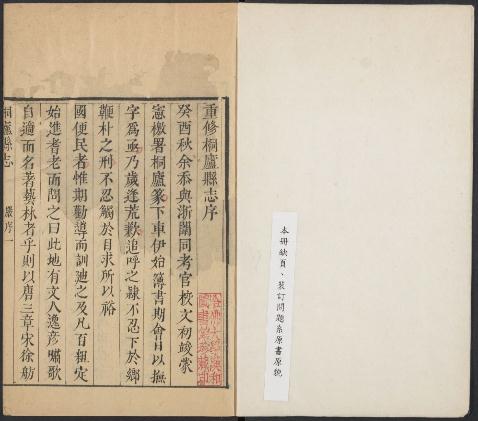 本冊缺頁、裝訂問題系原書原貌
重修桐廬縣志序
癸酉秋余忝與浙闈同考官校文初竣蒙
憲檄署桐廬篆下車伊始簿書期會日以撫
字為亟乃歲逢荒歉追呼之隸不忍下於鄉
鞭朴之刑不忍觸於目求所以裕
國便民者惟期勸導而訓迪之及凡百粗定
始進耆老而問之曰此地有文人逸彥嘯歌
自適而名著藝林者乎則以唐三章宋徐舫
桐廬縣志
嚴序一